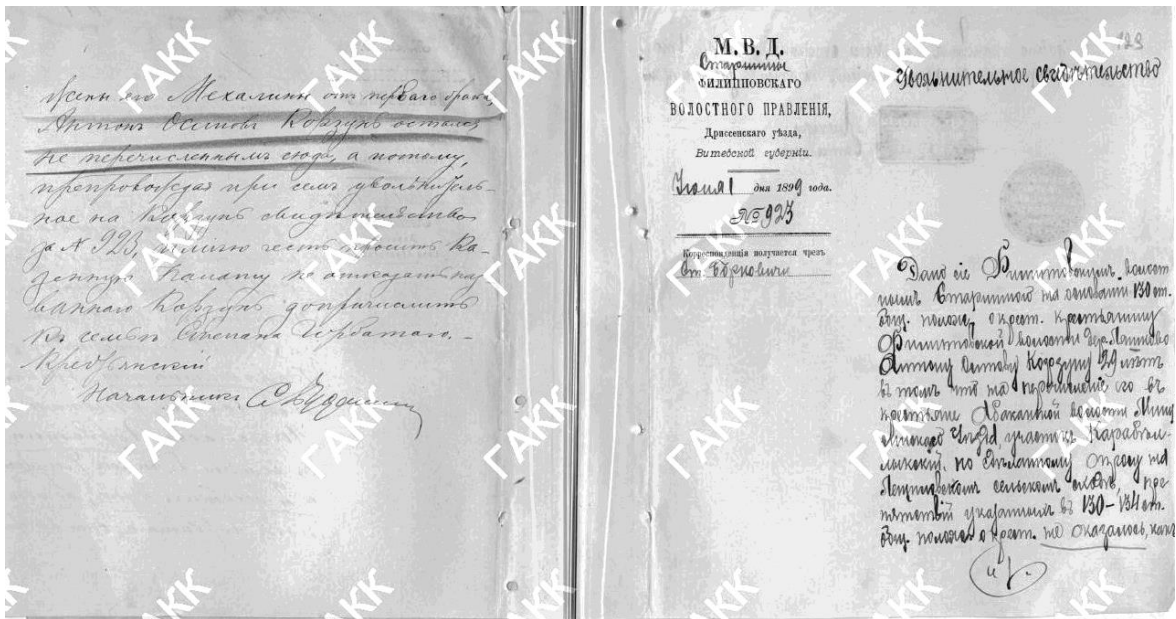 жены его Механины отъ перваго брака,
Антонъ Осиповъ Корзунъ остался
не перечисленнымъ сюда, а потому,
препровождая при семъ увольнитель-
ное на Корзунъ свидѣтельство
за № 923, имѣю честь просить Ка-
зенную Палату не отказать наз
ваннаго Корзунъ допричислить
къ семьѣ Степана Горбатаго.-
Крестьянскій
Начальникъ
М. В. Д.
Старшины
ФИЛИППОВСКАГО
ВОЛОСТНОГО ПРАВЛЕНІЯ,
Дриссенскаго уѣзда,
Витебской губерніи.
Іюня 1 дня 1899 года.
№ 923
Корреспонденція получается чрезъ
Ст. Бѣрковичи
123
Увольнительное свидѣтельство
Дано сіе Филипповскимъ волост
нымъ Старшиною на основаніи 130 ст.
общ. полож. о крест. крестьянину
Филипповской волости дер.
Антону Осипову 29 лѣтъ
въ томъ что на перечисленіе его въ
крестьяне Абаканской волости Мину
синскаго участ.
по сдѣланному опросу на
сельскомъ сходѣ, пре
пятствій указанныхъ въ 130-134 ст.
общ. полож. о крест. не оказалось, какъ
ГАКК